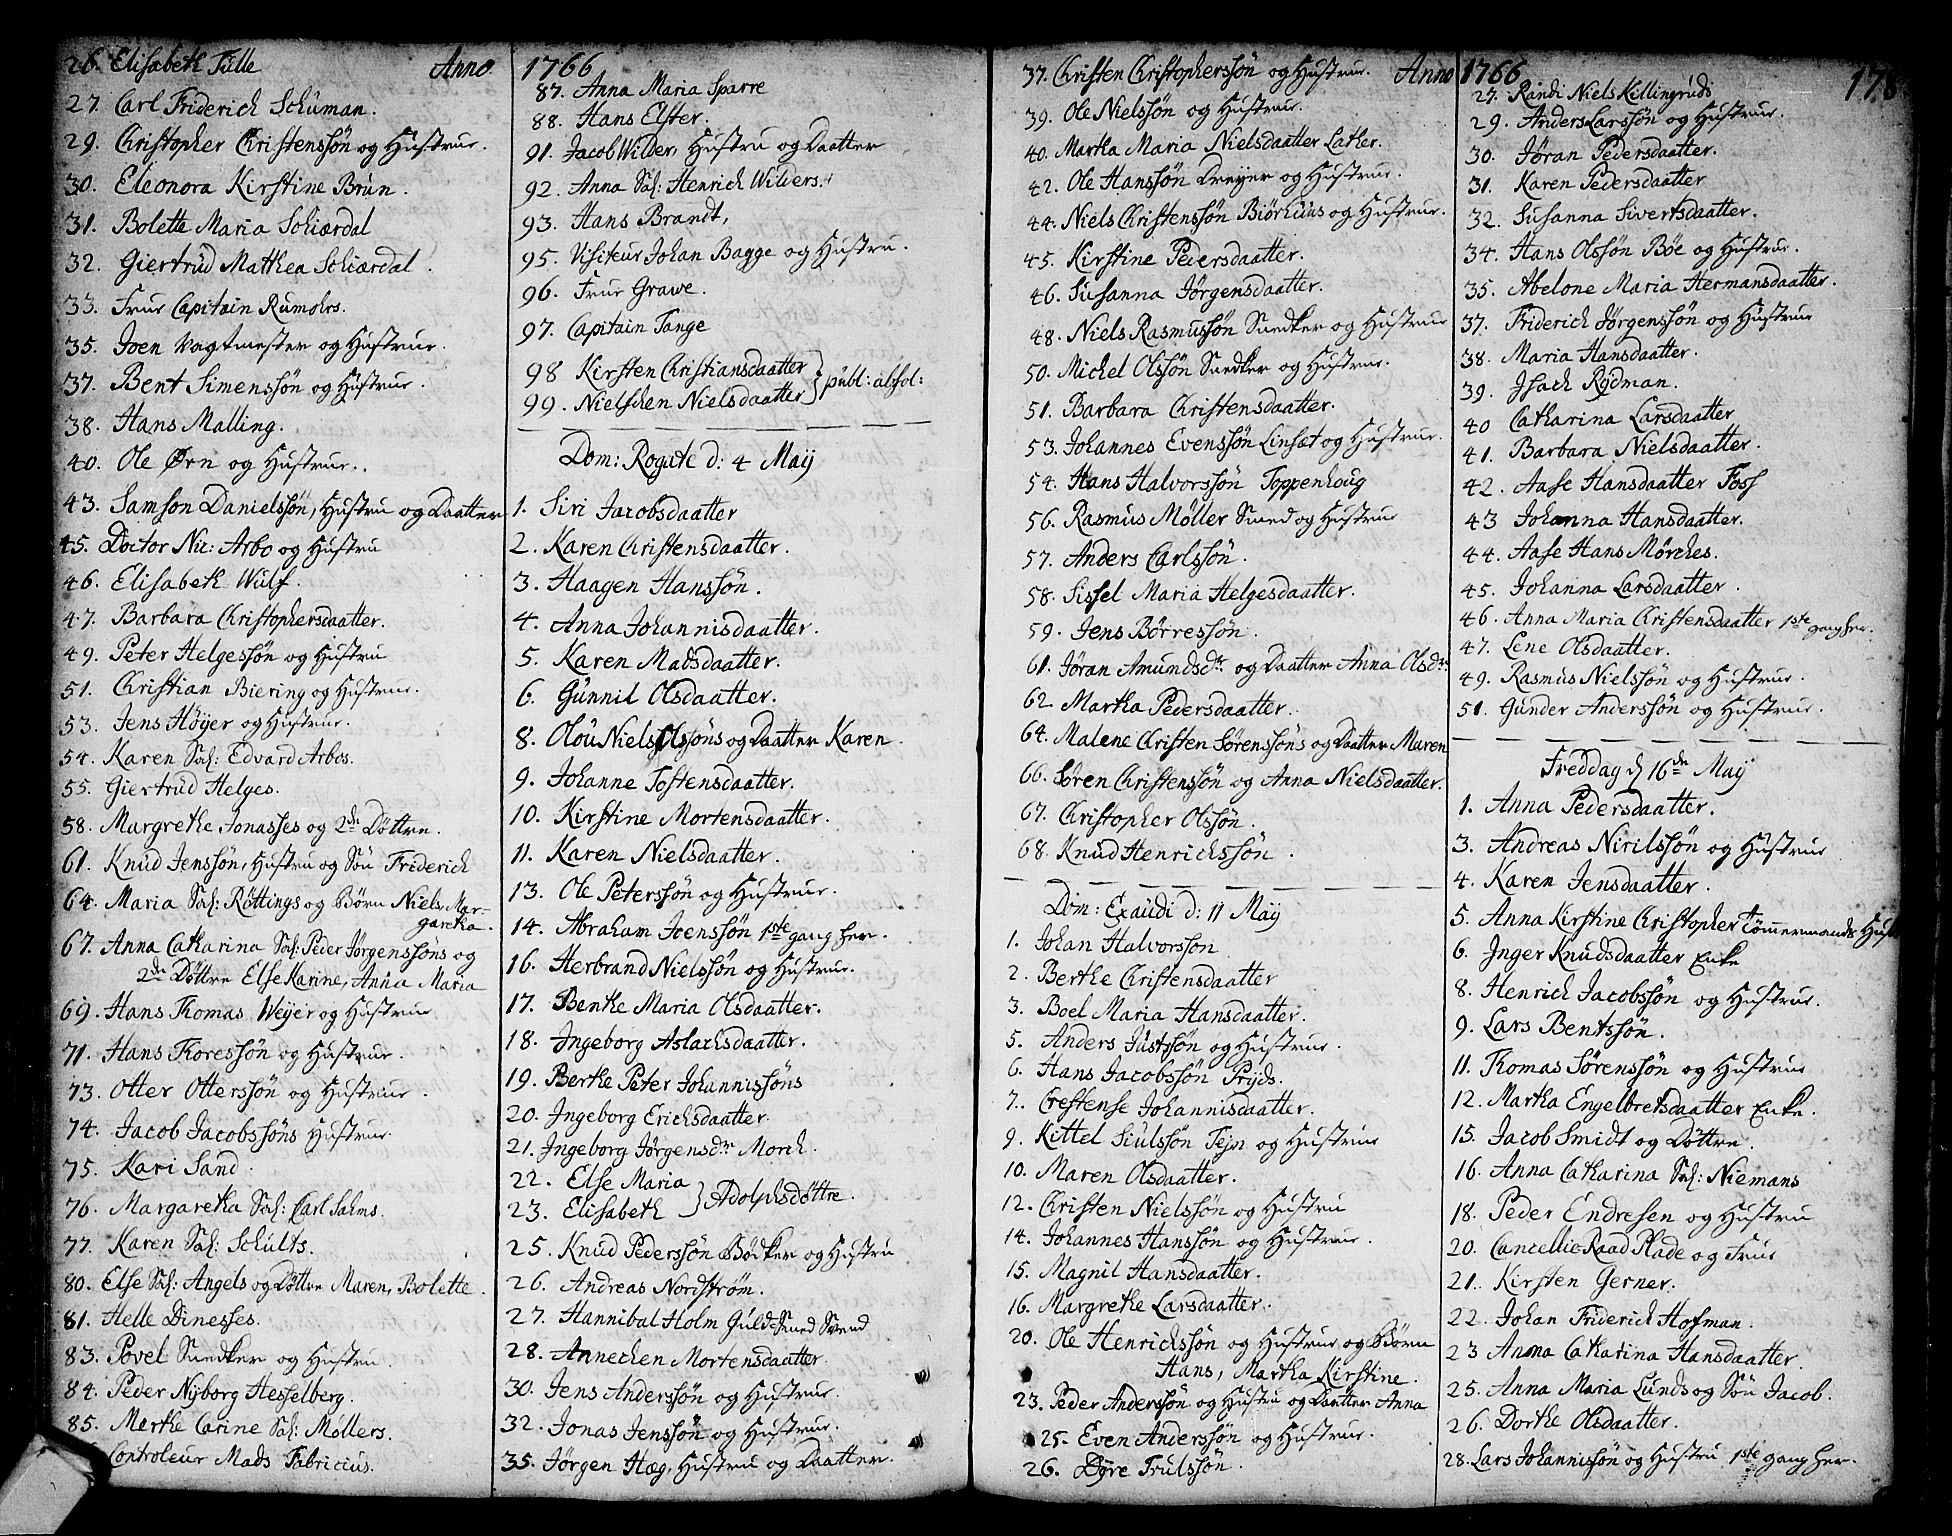 Anno 1766
26. Elisabeth Tulle
27. Carl Friderich Schuman.
29. Christopher Christenssön og Hustrue.
30. Eleonora Kirstine Brun.
31. Bolette Maria Schiærdal
32. Giertrud Mathea Schiærdal.
33. Frue Capitain Rumohrs.
35. Joen Vagtmester og Hustrue.
37. Bent Simenssön og Hustrue.
38. Hans Malling.
40. Ole Ørn og Hustrue.
43. Samson Danielssön, Hustru og Daatter
45. Doctor Nic: Arbo og Hustru
46. Elisabeth Wulf.
47. Barbara Christophersdaatter.
49. Peter Helgessön og Hustru
51. Christian Biering og Hustrue.
53. Jens Höyer og Hustrue.
54. Karen Sal: Edvard Arbos.
55. Giertrud Helges.
58. Margrethe Jonasses og 2de Döttre.
61. Knud Jenssön, Hustru og Sön Friderich
64. Maria Sal: Röttings og Börn Niels, Mar-
garetha.
67. Anna Catharina Sal: Peder Jörgenssöns og
2de Döttre Else Karine, Anna Maria
69. Hans Thomas Weyer og Hustrue
71. Hans Thoressön og Hustrue.
73. Otter Otterssön og Hustrue.
74. Jacob Jacobssöns Hustrue.
75. Kari Sand.
76. Margaretha Sal: Carl Salms.
77. Karen Sal: Schults.
80. Else Sal: Angels og Döttre Maren, Bolette.
81. Helle Dinesses.
83. Povel Snedker og Hustru.
84. Peder Nyborg Hesselberg.
85. Merthe Carine Sal: Møllers.
Controleur Mads Fabricius.
87. Anna Maria Sparre
88. Hans Elster.
91. Jacob Wilder, Hustru og Daatter
92. Anna Sal: Henrich Wilders.
93. Hans Brandt,
95. Visiteur Johan Bagge og Hustru.
96. Frue Grawe.
97. Capitain Tange
98 Kirsten Christiansdaatter
99. Nielschen Nielsdaatter } publ: absol:
Dom: Rogate d: 4 Maij
1. Siri Jacobsdaatter
2. Karen Christensdaatter.
3. Haagen Hanssön.
4. Anna Johannisdaatter.
5. Karen Madsdaatter.
6. Gunnil Olsdaatter.
8. Olou Niels Olssöns og Daatter Karen.
9. Johanne Tostensdaatter.
10. Kirstine Mortensdaatter.
11. Karen Nielsdaatter.
13. Ole Peterssön og Hustrue.
14. Abraham Joenssön 1ste gang her.
16. Herbrand Nielssön og Hustrue.
17. Benthe Maria Olsdaatter.
18. Jngeborg Aslachsdaatter.
19. Berthe Peter Johannissöns
20. Jngeborg Erichsdaatter.
21. Jngeborg Jörgensdr Morch.
22. Else Maria
23. Elisabeth } Adolphsdöttre.
25. Knud Pederssön Bödker og Hustru
26. Andreas Nordström.
27. Hannibal Holm Guld-Smed Svend
28. Annechen Mortensdaatter
30. Jens Anderssön og Hustrue.
32. Jonas Jenssön og Hustrue.
35. Jörgen Hæg, Hustru og Daatter.
Anno 1766
178
37. Christen Christopherssön og Hustrue.
39. Ole Nielssön og Hustrue.
40. Martha Maria Nielsdaatter Lather.
42. Ole Hanssön Dreyer og Hustrue.
44. Niels Christenssön Biörkuus og Hustrue.
45. Kirstine Pedersdaatter.
46. Susanna Jörgensdaatter.
48. Niels Rasmussön Snedker og Hustrue
50. Michel Olssön Snedker og Hustrue.
51. Barbara Christensdaatter.
53. Johannes Evenssön Linsæt og Hustrue.
54. Hans Halvorssön Toppenhoug
56. Rasmus Møller Smed og Hustrue
57. Anders Carlssön.
58. Sissel Maria Helgesdaatter.
59. Jens Börressön.
61. Jöran Amundsdr. og Daatter Anna Olsdr.
62. Martha Pedersdaatter.
64. Malene Christen Sörenssöns og Daatter Maren
66. Sören Christenssön og Anna Nielsdaatter.
67. Christopher Olssön.
68. Knud Henrichssön.
Dom: Exaudi d: 11 Maij
1. Johan Halvorsson
2. Berthe Christensdaatter
3. Boel Maria Hansdaatter.
5. Anders Justssön og Hustrue.
6. Hans Jacobssön Prijds.
7. Crestense Johannisdaatter.
9. Kittel Siulssön Tejn og Hustrue
10. Maren Olsdaatter.
12. Christen Nielssön og Hustru
14. Johannes Hanssön og Hustrue.
15. Magnil Hansdaatter.
16. Margrethe Larsdaatter.
20. Ole Henrichssön og Hustrue og Börn
Hans, Martha Kirstine.
23. Peder Anderssön og Hustru og Daatter Anna
25. Even Anderssön og Hustrue.
26. Dyre Trulssön.
27. Randi Niels Killingruds
29. Anders Larssön og Hustrue.
30. Jöran Pedersdaatter.
31. Karen Pedersdaatter
32. Susanna Sivertsdaatter.
34. Hans Olssön Böe og Hustrue.
35. Abelone Maria Hermansdaatter.
37. Friderich Jörgenssön og Hustrue
38. Maria Hansdaatter.
39. Jsach Rydman.
40 Catharina Larsdaatter
41. Barbara Nielsdaatter.
42. Aase Hansdaatter Foss
43 Johanna Hansdaatter.
44. Aase Hans Mörches.
45. Johanna Larsdaatter.
46. Anna Maria Christensdaatter 1ste gang her.
47. Lene Olsdaatter.
49. Rasmus Nielssön og Hustrue.
51. Gunder Anderssön og Hustrue.
Freddag d 16de Maij
1. Anna Pedersdaatter.
3. Andreas Nirilssön og Hustrue
4. Karen Jensdaatter.
5. Anna Kirstine Christopher Tömmermands Hust
6. Jnger Knudsdaatter Enke
8. Henrich Jacobssön og Hustrue.
9. Lars Bentssön.
11. Thomas Sörenssön og Hustrue
12. Martha Engelbretsdaatter Enke.
15. Jacob Smidt og Döttre.
16. Anna Catharina Sal: Niemans
18. Peder Endresen og Hustru
20. Cancellie Raad Plade og Frue
21. Kirsten Gerner.
22. Johan Friderich Hofman.
23 Anna Catharina Hansdaatter.
25. Anna Maria Lunds og Sön Jacob.
26. Dorthe Olsdaatter.
28. Lars Johannissön og Hustru 1ste gang her.